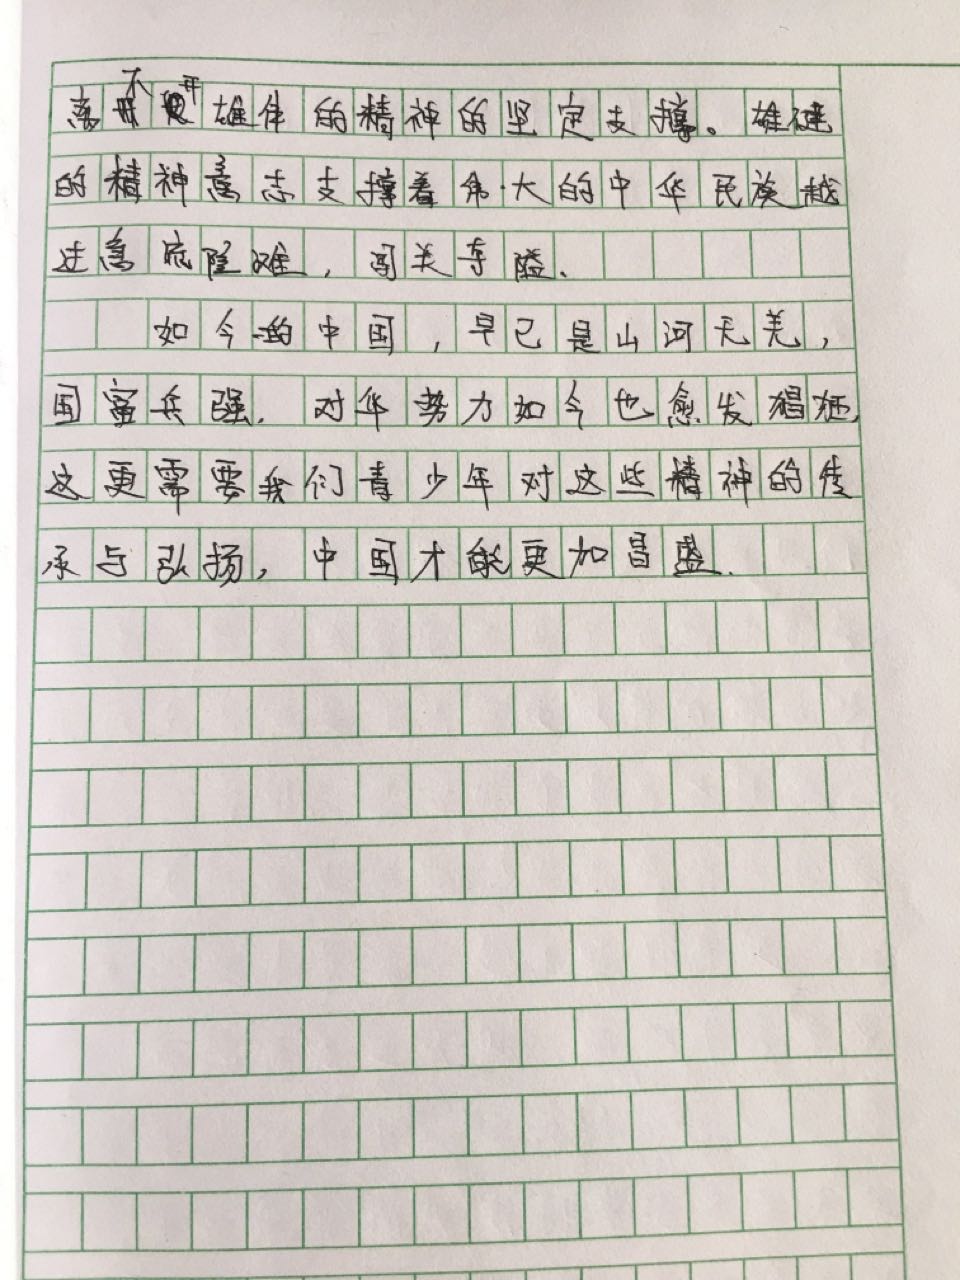 离不开雄伟的精神的坚定支撑。雄健
的精神意志支撑着伟大的中华民族越
过急流险难，闯关夺隘.
如今的中国，早已是山河无羌，
国富兵强. 对华势力如今也愈发猖狂,
这更需要我们青少年对这些精神的传
承与弘扬，中国才能更加昌盛.